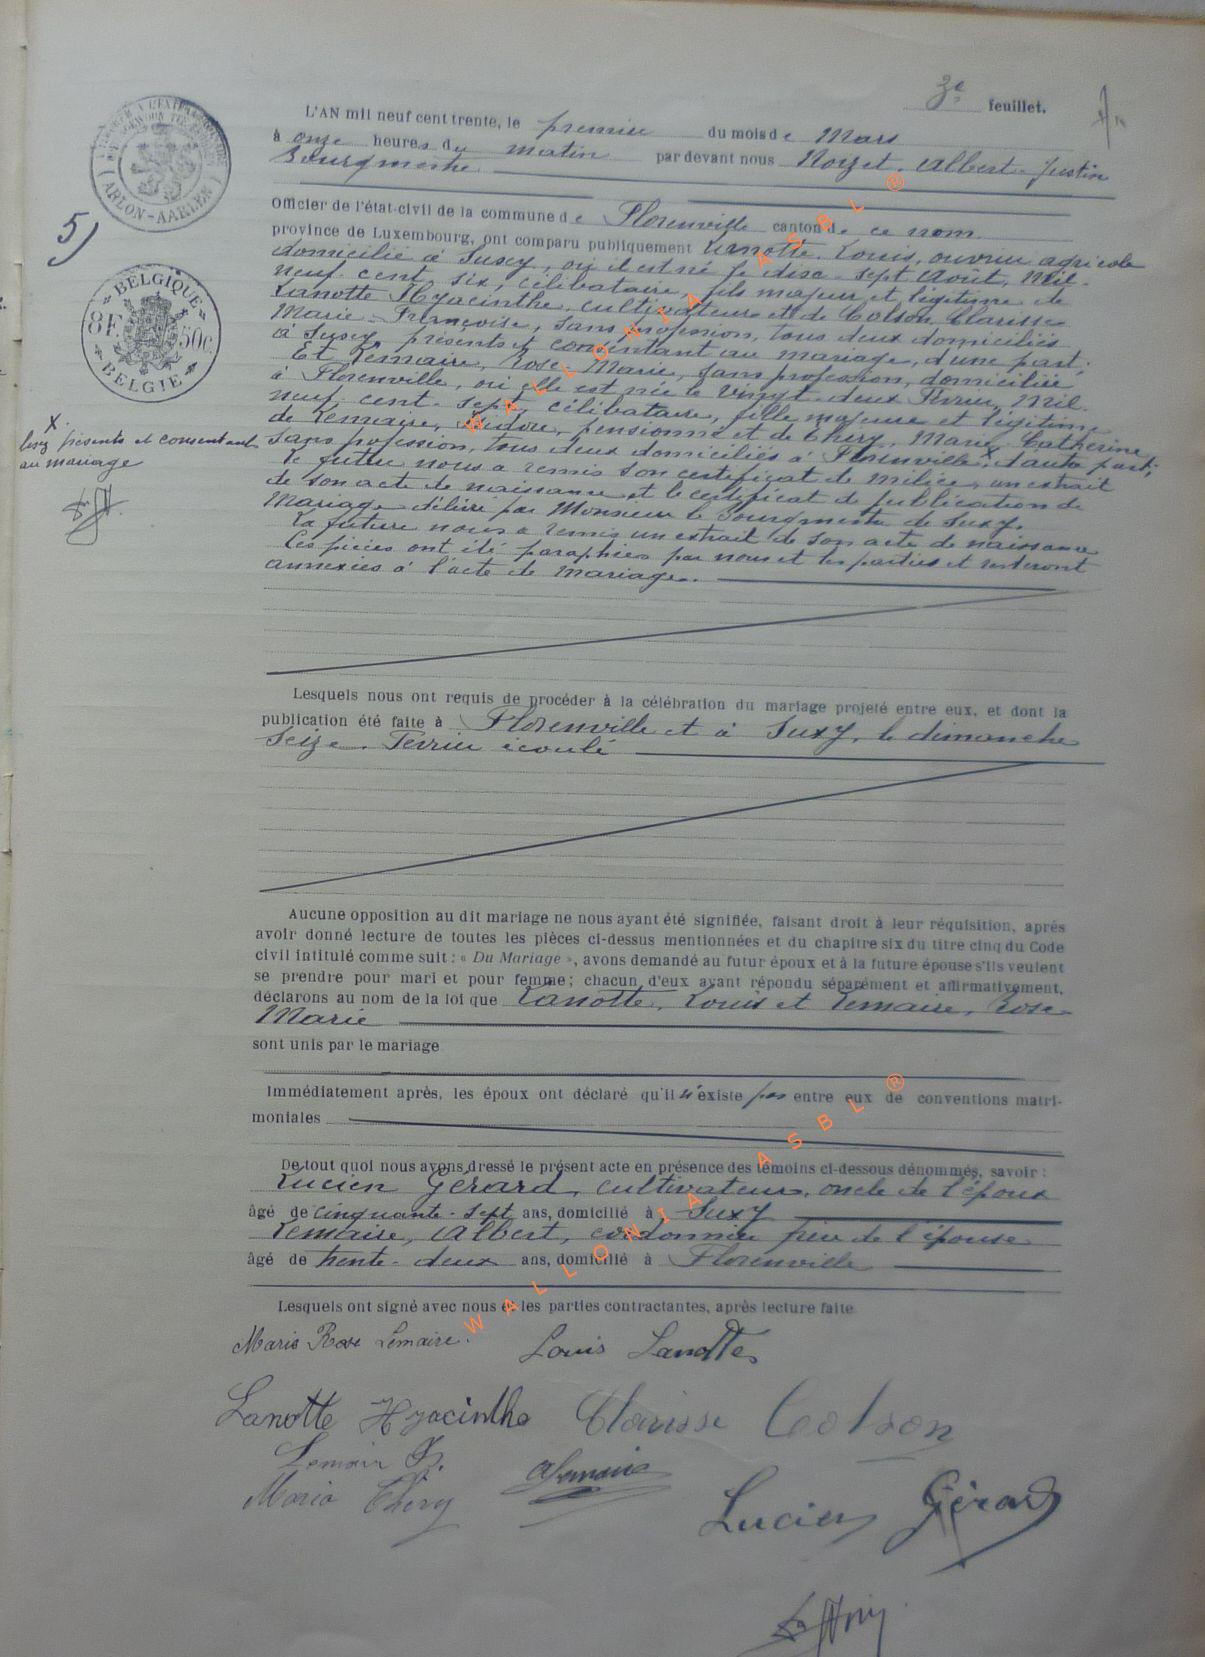 3e feuillet.
L'AN mil neuf cent trente, le premier du mois de Mars
à onze heures du matin par devant nous Noizet, Albert-Justin
Bourgmestre
Officier de l'état-civil de la commune de Florenville canton de ce nom
province de Luxembourg, ont comparu publiquement Lanotte, Louis, ouvrier agricole
domicilié à Suxy, où il est né le disc-sept Août, Mil-
neuf cent six, célibataire, fils majeur et légitime de
Lanotte Hyacinthe, cultivateur et de Colson, Clarisse
Marie-Françoise, sans profession, tous deux domiciliés
à Suxy, présents et consentant au mariage, d'une part.
Et Lemaire, Rose-Marie, sans profession, domiciliée
à Florenville, où elle est née le vingt-deux Février, Mil-
neuf cent-sept, célibataire, fille majeure et légitime
de Lemaire, Isidore, pensionné et de Théry, Marie-Catherine
sans profession, tous deux domiciliés à Florenville, x d'autre part;
Le futur nous a remis son certificat de milice, un extrait
de son acte de naissance et le certificat de publication de
Mariage délivré par Monsieur le Bourgmestre de Suxy.
La future nous a remis un extrait de son acte de naissance
Ces pièces ont été paraphées par nous et les parties et resteront
annexées à l'acte de Mariage.
ARLON-AARLEN
5)
BELGIQUE
8F. 50c.
BELGIE
x
lisez présents et consentant
au mariage
Lesquels nous ont requis de procéder à la célébration du mariage projeté entre eux, et dont la
publication été faite à Florenville et à Suxy, le dimanche
Seize Février écoulé
Aucune opposition au dit mariage ne nous ayant été signifiée, faisant droit à leur réquisition, après
avoir donné lecture de toutes les pièces ci-dessus mentionnées et du chapitre six du titre cinq du Code
civil intitulé comme suit : « Du Mariage », avons demandé au futur époux et à la future épouse s'ils veulent
se prendre pour mari et pour femme ; chacun d'eux ayant répondu séparément et affirmativement,
déclarons au nom de la loi que Lanotte, Louis et Lemaire, Rose-
Marie
sont unis par le mariage
Immédiatement après, les époux ont déclaré qu'il n'existe pas entre eux de conventions matri-
moniales
De tout quoi nous avons dressé le présent acte en présence des témoins ci-dessous dénommés, savoir :
Lucien Gérard, cultivateur, oncle de l'époux
âgé de cinquante-sept ans, domicilié à Suxy
Lemaire, Albert, cordonnier frère de l'épouse
âgé de trente-deux ans, domicilié à Florenville
Lesquels ont signé avec nous et les parties contractantes, après lecture faite
Marie Rose Lemaire. Louis Lanotte
Lanotte Hyacinthe Clarisse Colson
Lemair I.
ALemaire
Maria Théry
Lucien Gérard
WALLONIA ASBL ®
WALLONIA ASBL ®